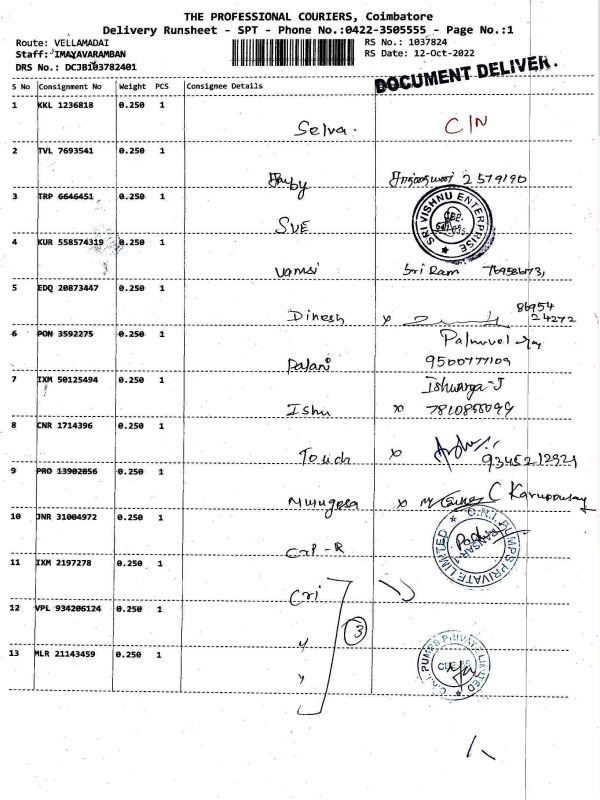 THE PROFESSIONAL COURIERS, Coimbatore
Delivery Runsheet - SPT - Phone No.:0422-3505555 - Page No.:1
Route: VELLAMADAI
RS No.: 1037824
Staff: IMAYAVARAMBAN
RS Date: 12-Oct-2022
DRS No.: DCJB103782401
DOCUMENT DELIVER.
S No Consignment No Weight PCS Consignee Details
1 KKL 1236818 0.250 1
Selva. C/N
2 TVL 7693541 0.250 1
2579190
3 TRP 6646451 0.250 1
SVE
SRI VISHNU ENTERPRISE
4 KUR 558574319 0.250 1
Vamsi Sri Ram
5 EDQ 20873447 0.250 1
Dinesh x 86954
24272
6 PON 3592275 0.250 1
Palani 9500777109
7 IXM 50125494 0.250 1
Ishu x
8 CNR 1714396 0.250 1
Touch x 9345212921
9 PRO 13902856 0.250 1
Murugesa x
10 JNR 31004972 0.250 1
CRP - R
C.R.I. PUMPS PRIVATE LIMITED
11 IXM 2197278 0.250 1
Cri
12 VPL 934206124 0.250 1
" 3
13 MLR 21143459 0.250 1
"
C.R.I. PUMPS PRIVATE LIMITED